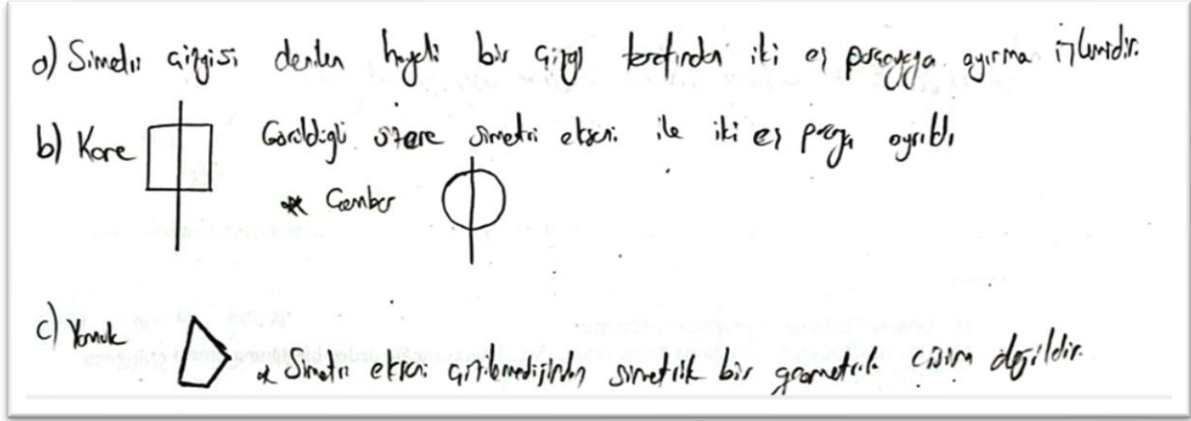 a) Simetri çizgisi denilen hayali bir çizgi tarafından iki eş parçaya ayırma işlemidir.
b) Kare Görüldüğü üzere simetri ekseni ile iki eş parça ayrıldı
* Çember
c) Yamuk
* Simetri ekseni çizilemediğinden simetrik bir geometrik cisim değildir.